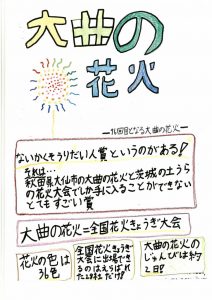 大曲の
花火
ないかくそうりだい人賞というのがある!
それは…
秋田県大仙市の大曲の花火と茨城の土うら
の花火大会でしか手に入ることができない
とてもすごい賞
大曲の花火=全国花火きょうぎ大会
花火の色は
36色
全国花火きょうぎ
大会に出場で
きるのはえらばれ
大曲の花火の
じゅんびは約
2日!